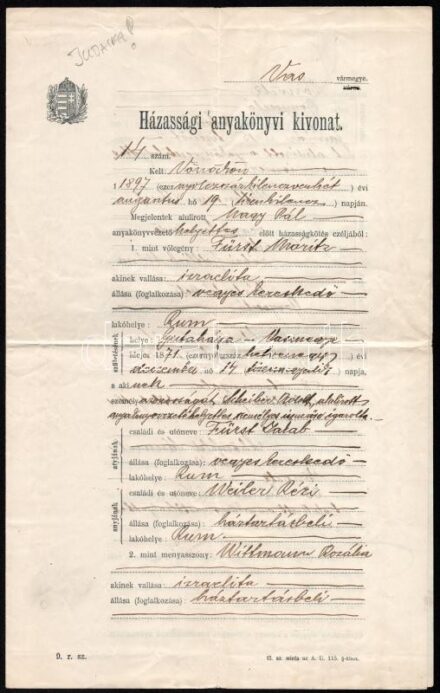 JUDAICA!
Vas vármegye.
Házassági anyakönyvi kivonat.
14 szám.
Kelt Vönöckön
1897 (ezer nyolcszázkilencvenhét) évi
augusztus hó 19 tizenkilenc napján.
Megjelentek alulirott Nagy Pál
anyakönyvvezető helyettes előtt házasságkötés czéljából:
1. mint vőlegény: Fürst Moritz
akinek vallása: izraelita
állása (foglalkozása): vegyeskereskedő
lakóhelye: Rum
születésének
helye: Vasmegye
ideje: 1871 (ezernyolczszáz hetvenegy) évi
deczember hó 14 napja,
a ki nek
személy
atyjának
családi és utóneve: Fürst Jakab
állása (foglalkozása): vegyeskereskedő
lakóhelye: Rum
anyjának
családi és utóneve: Weiler Rézi
állása (foglalkozása): háztartásbeli
lakóhelye: Rum
2. mint menyasszony: Wittmann Rozália
akinek vallása: izraelita
állása (foglalkozása): háztartásbeli
D. r. sz.
sz. minta az A. U. §-ához.